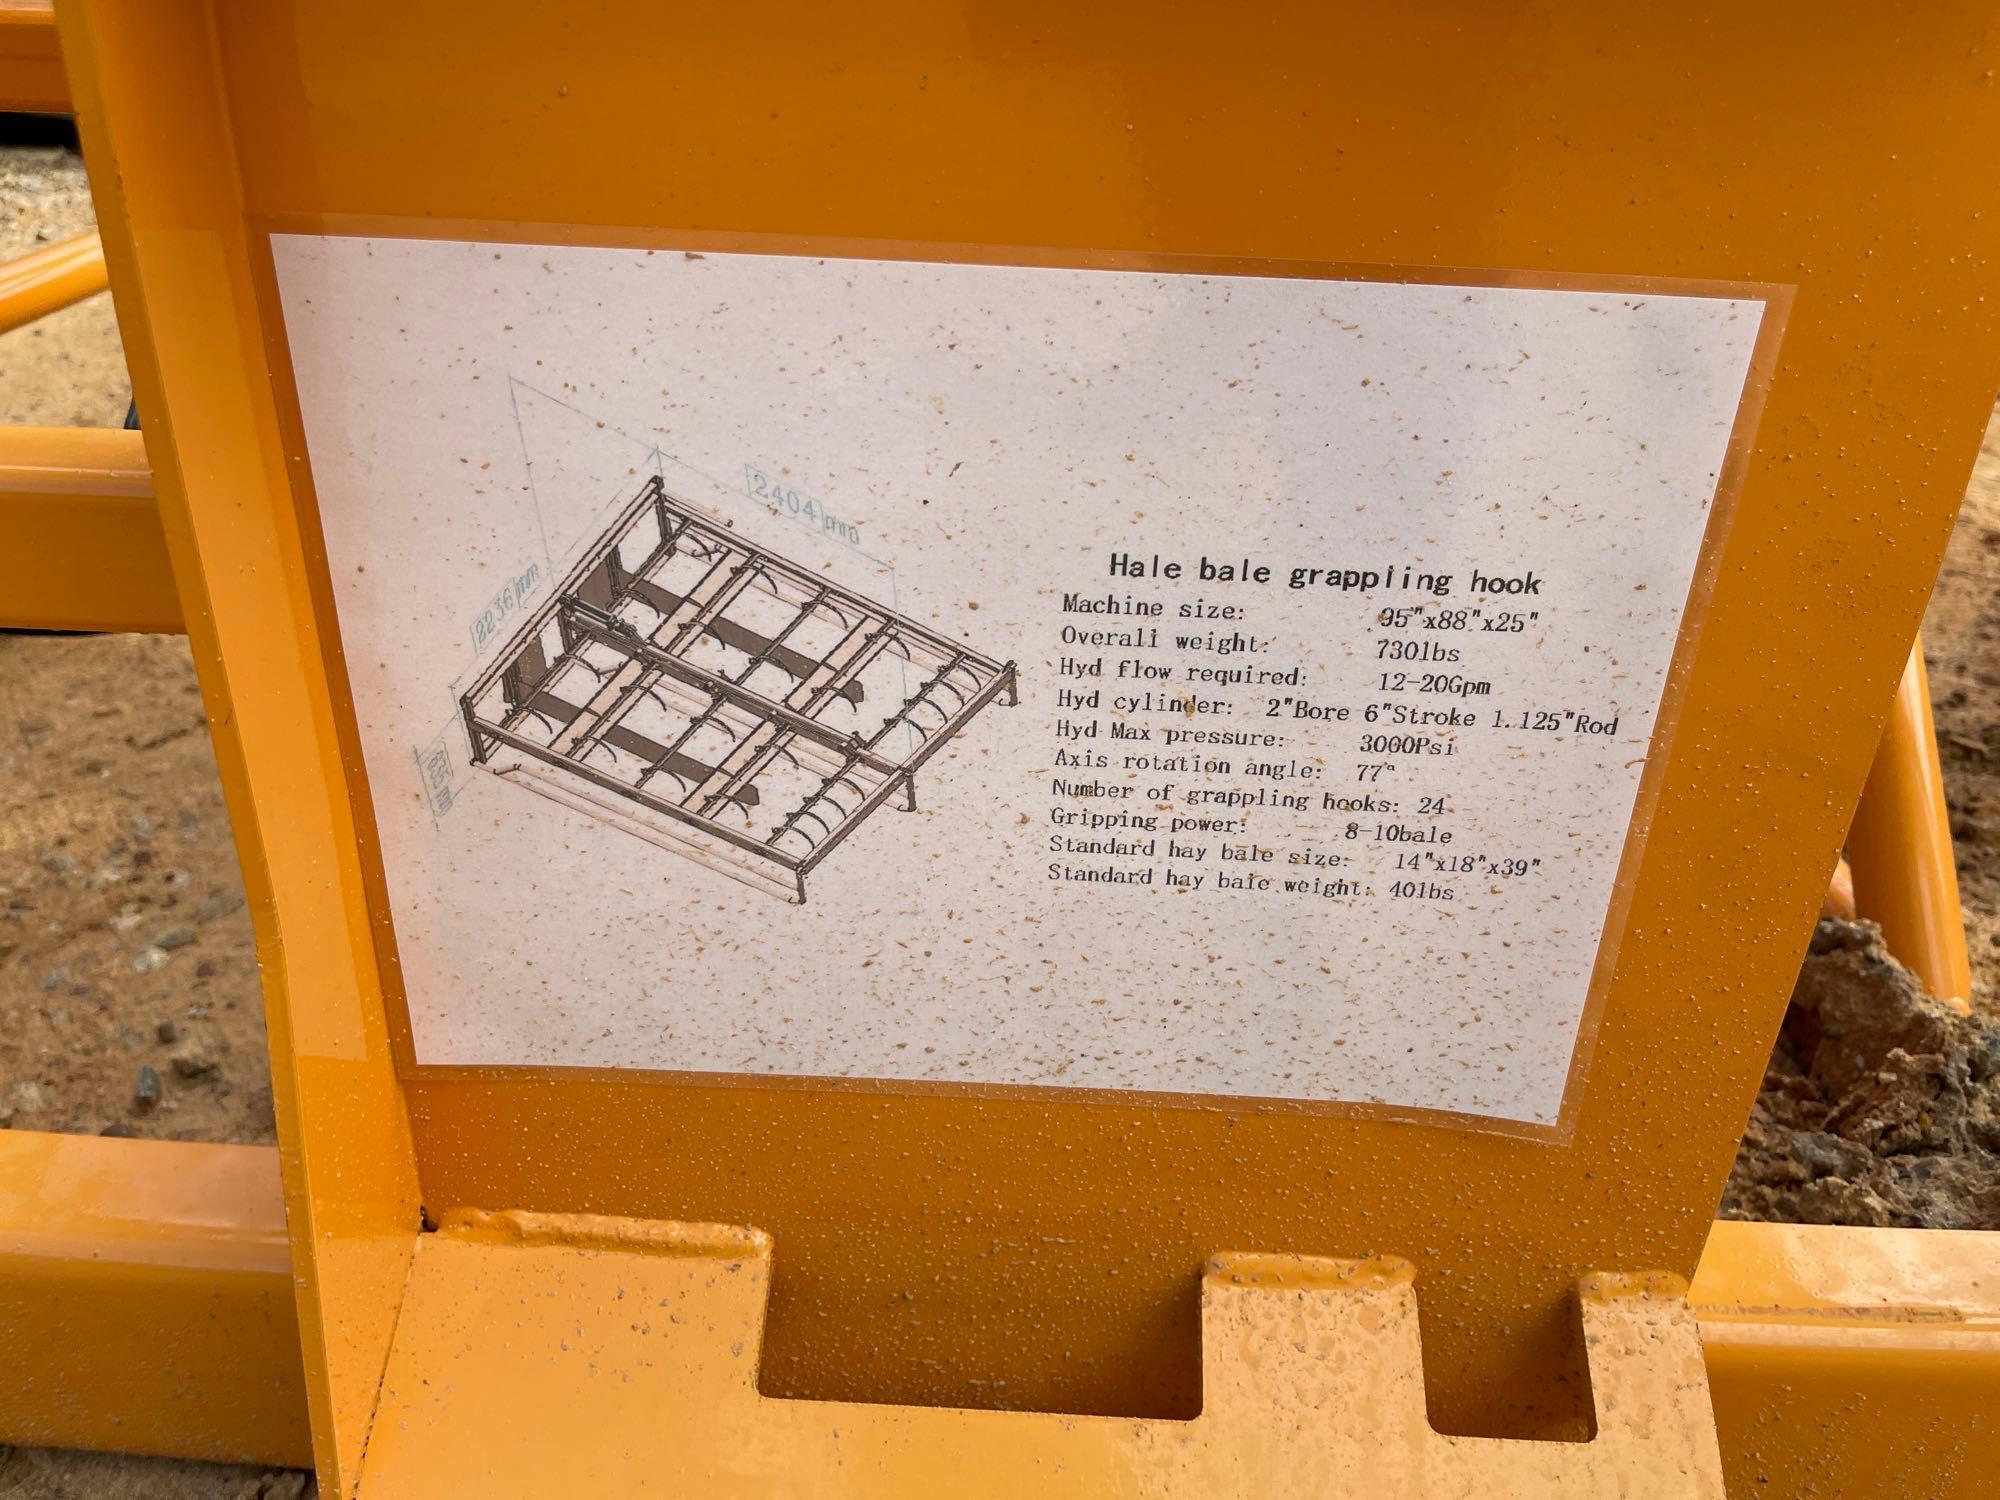 2404 mm
2236 mm
635 mm
Hale bale grappling hook
Machine size: 95"x88"x25"
Overall weight: 730lbs
Hyd flow required: 12-20Gpm
Hyd cylinder: 2"Bore 6"Stroke 1.125"Rod
Hyd Max pressure: 3000Psi
Axis rotation angle: 77°
Number of grappling hooks: 24
Gripping power: 8-10bale
Standard hay bale size: 14"x18"x39"
Standard hay bale weight: 40lbs